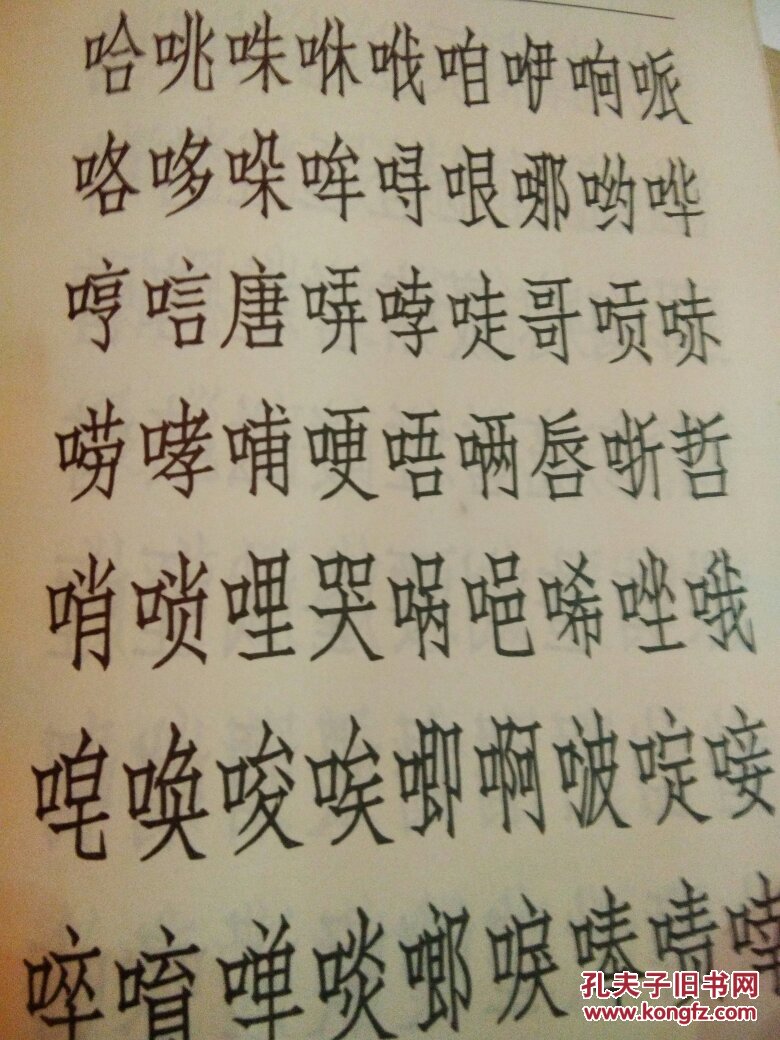 哈咷咮咻哦咱咿响哌
咯哆哚哞哷哏哪哟哗
哼唁唐哢哱唗哥唝哧
唠哮哺哽唔唡唇哳哲
哨唢哩哭㖞唈唏唑哦
唣唤唆唉唧啊啵啶唼
啐唷啴啖啷唳嗪啧
孔夫子旧书网
www.kongfz.com